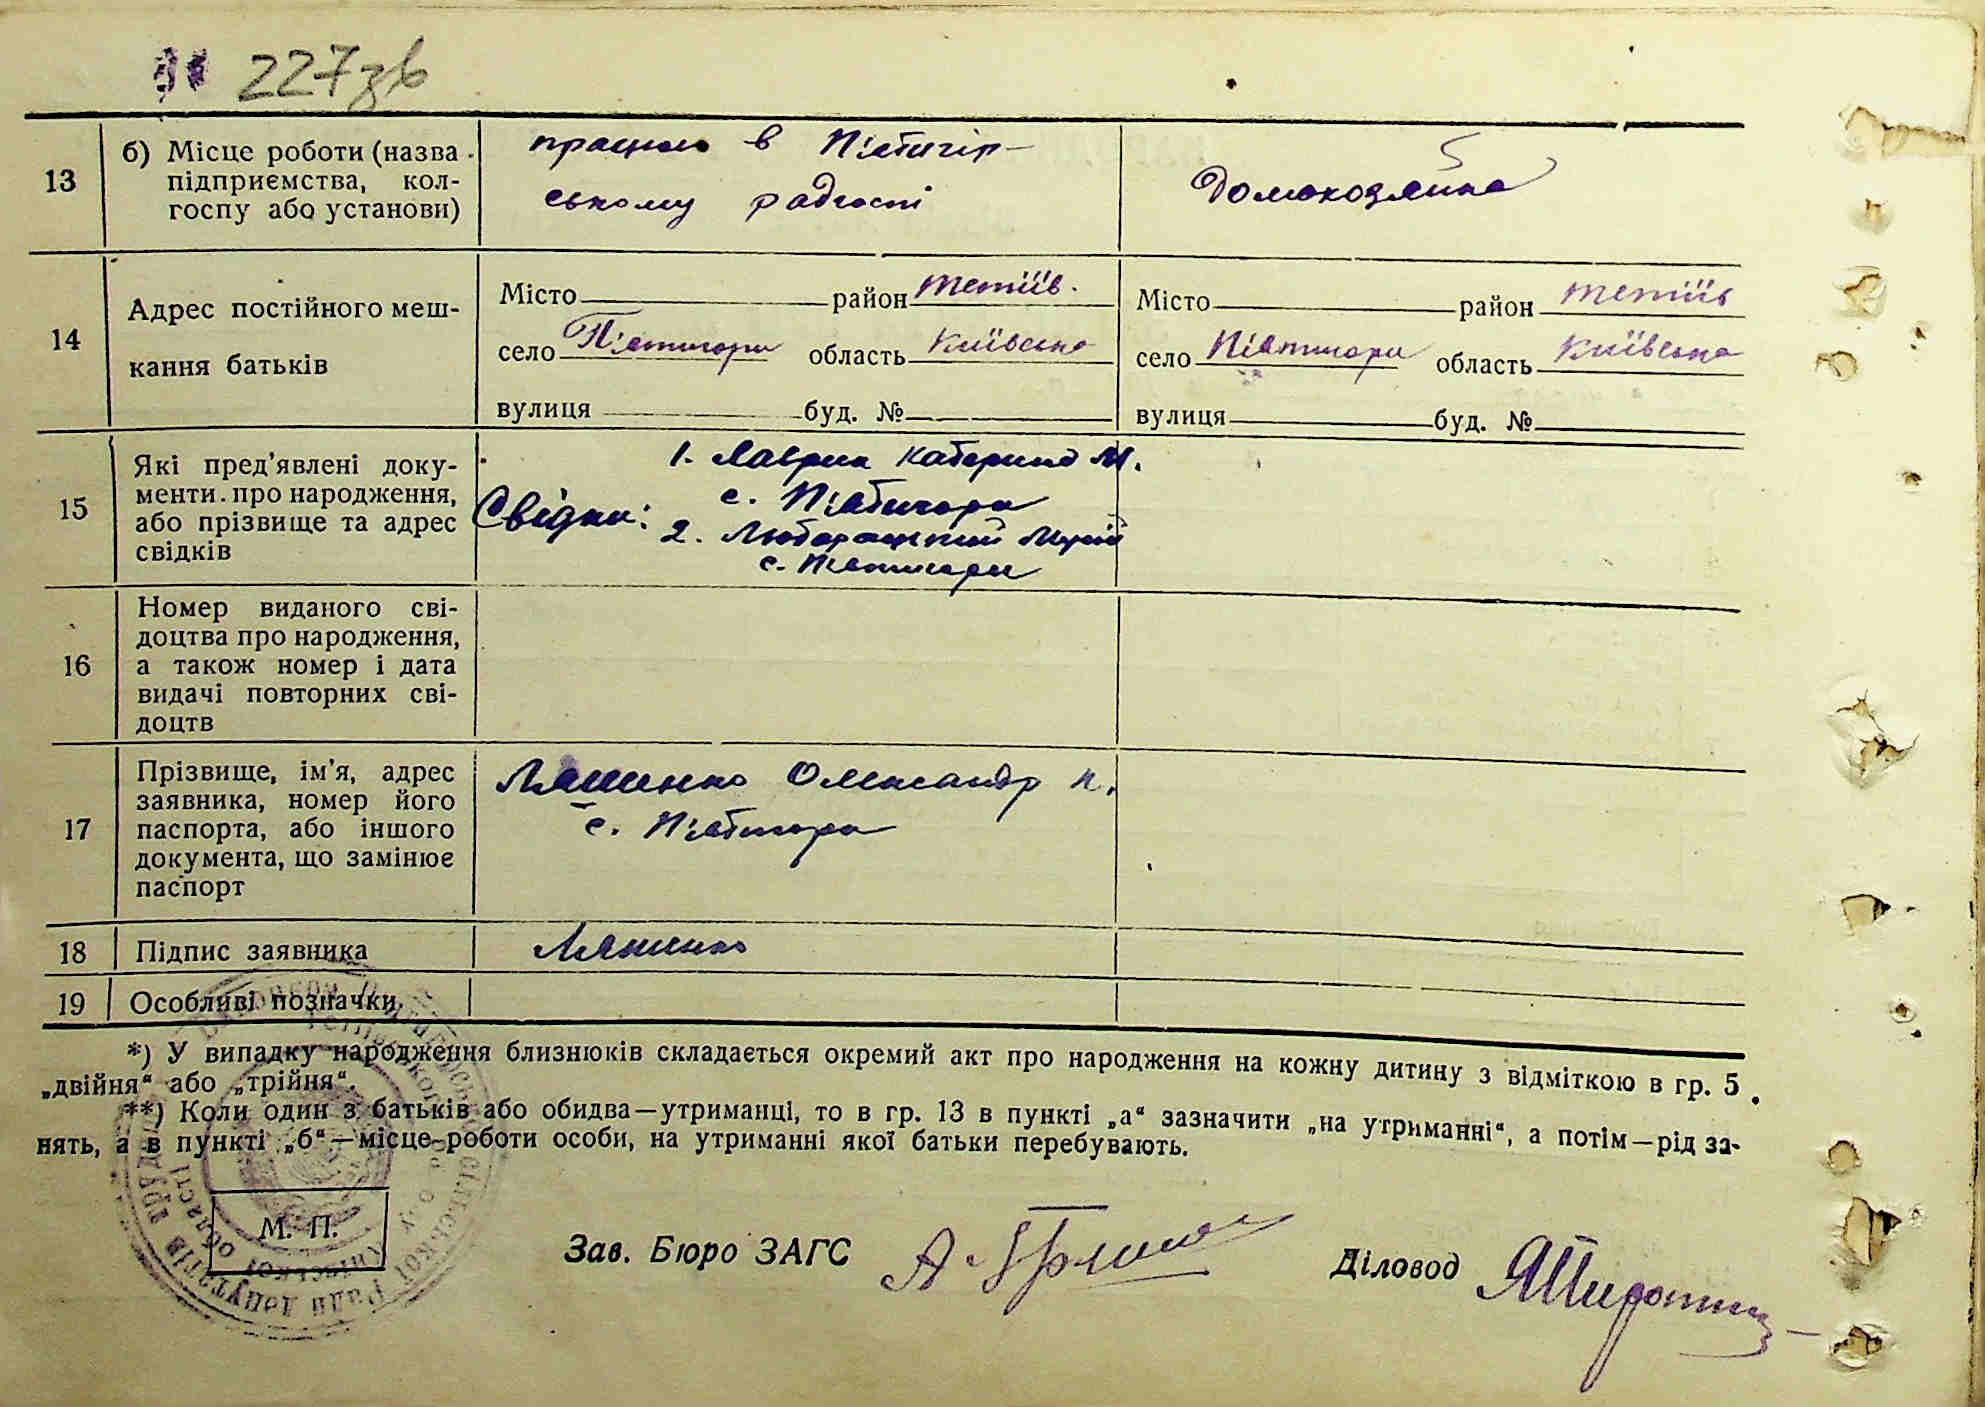 227зв
13 б) Місце роботи (назва підприємства, кол-
госпу або установи)
працює в П'ятигір-
ському радгоспі
Домохозяйка
14 Адрес постійного меш-
кання батьків
Місто район Тетіїв.
село П'ятигори область Київська
вулиця буд. №
Місто район Тетіїв
село П'ятигори область Київська
вулиця буд. №
15 Які пред'явлені доку-
менти про народження,
або прізвище та адрес
свідків
Свідки: 1. Лаврик Катерина М.
с. П'ятигори
2. Мусій
с. П'ятигори
16 Номер виданого сві-
доцтва про народження,
а також номер і дата
видачі повторних сві-
доцтв
17 Прізвище, ім'я, адрес
заявника, номер його
паспорта, або іншого
документа, що замінює
паспорт
Ляшенко Олександр П.
с. П'ятигори
18 Підпис заявника Ляшенко
19 Особливі позначки
*) У випадку народження близнюків складається окремий акт про народження на кожну дитину з відміткою в гр. 5
„двійня“ або „трійня“.
**) Коли один з батьків або обидва—утриманці, то в гр. 13 в пункті „а“ зазначити „на утриманні“, а потім—рід за-
нять, а в пункті „б“—місце роботи особи, на утриманні якої батьки перебувають.
М. П.
Зав. Бюро ЗАГС
Діловод